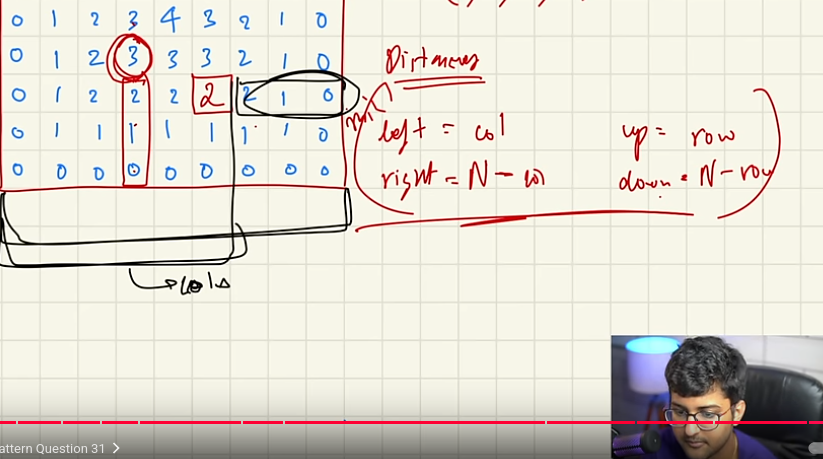 0 1 2 3 4 3 2 1 0
0 1 2 3 3 3 2 1 0
0 1 2 2 2 2 2 1 0
0 1 1 1 1 1 1 1 0
0 0 0 0 0 0 0 0 0
Distances
min
left = col
right = N - col
up = row
down = N - row
cols
attern Question 31